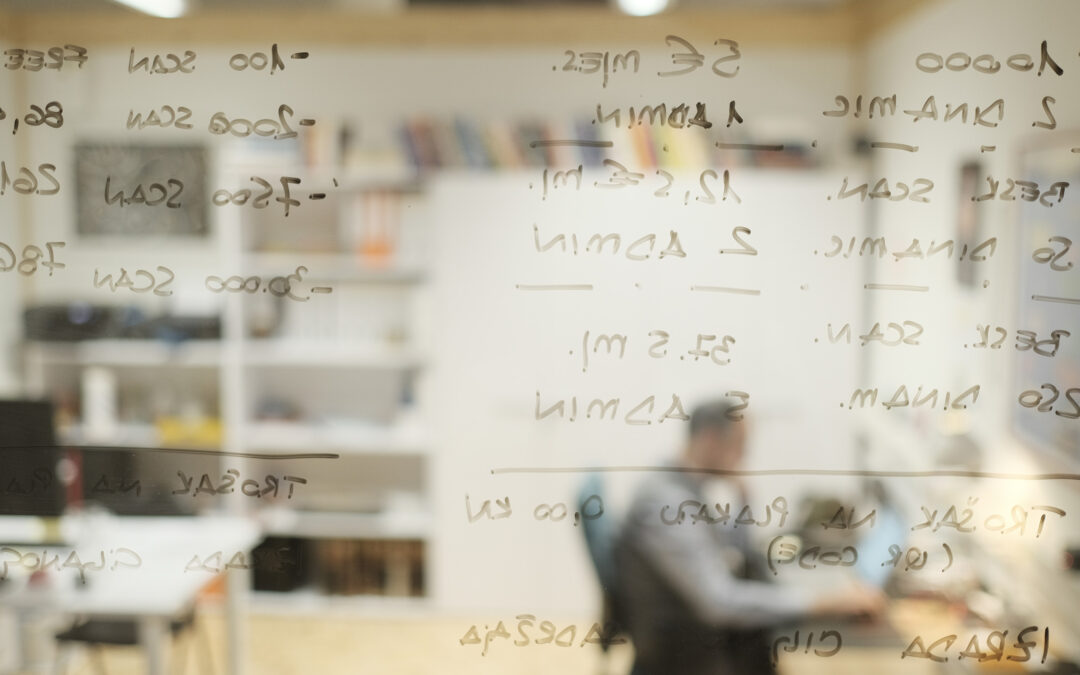 10000
2 DINAMIC
BESK. SCAN.
50 DINAMIC.
BESK. SCAN.
250 DINAM.
5 € mjes.
1 ADMIN.
12,5 € mj.
2 ADMIN
37.5 mj.
5 ADMIN
TROŠAK NA PLAKATU 0,00 KN
(QR CODE)
IZRADA
-100 SCAN FREE
-2000 SCAN 86,
-7500 SCAN 261
-30.000 SCAN 786
TROŠAK NA PLA